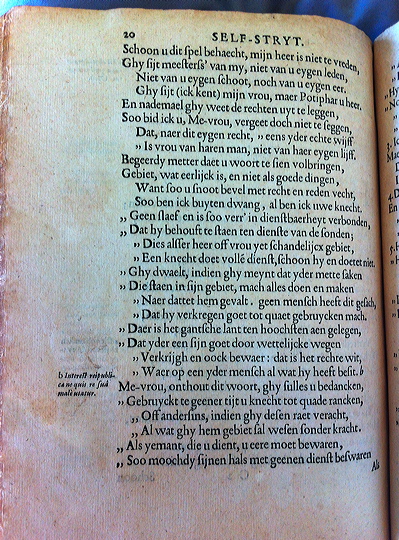 20 SELF-STRYT.
Schoon u dit spel behaecht, mijn heer is niet te vreden,
Ghy sijt meesterss' van my, niet van u eygen leden,
Niet van u eygen schoot, noch van u eygen eer.
Ghy sijt (ick kent) mijn vrou, maer Potiphar u heer.
En nademael ghy weet de rechten uyt te leggen,
Soo bid ick u, Me-vrou, vergeet doch niet te seggen,
Dat, naer dit eygen recht, „ eens yder echte wijff
„ Is vrou van haren man, niet van haer eygen lijff.
Begeerdy metter daet u woort te sien volbringen,
Gebiet, wat eerlijck is, en niet als goede dingen,
Want soo u snoot bevel met recht en reden vecht,
Soo ben ick buyten dwang, al ben ick uwe knecht.
„ Geen slaef en is soo verr' in dienstbaerheyt verbonden,
„ Dat hy behouft te staen ten dienste van de sonden;
„ Dies alsser heer off vrou yet schandelijcx gebiet,
„ Een knecht doet vollē dienst, schoon hy en doetet niet.
„ Ghy dwaelt, indien ghy meynt dat yder mette saken
„ Die staen in sijn gebiet, mach alles doen en maken
„ Naer dattet hem gevalt. geen mensch heeft dit gesach,
„ Dat hy verkregen goet tot quaet gebruycken mach.
„ Daer is het gantsche lant ten hoochsten aen gelegen,
„ Dat yder een sijn goet door wettelijcke wegen
„ Verkrijgh en oock bewaer: dat is het rechte wit,
„ Waer op een yder mensch al wat hy heeft besit. b
b Interest reipubli-
ca ne quis re sua
male utatur.
Me-vrou, onthout dit woort, ghy sulles u bedancken,
„ Gebruyckt te geener tijt u knecht tot quade rancken,
„ Off andersins, indien ghy desen raet veracht,
„ Al wat ghy hem gebiet sal wesen sonder kracht.
„ Als yemant, die u dient, u eere moet bewaren,
„ Soo moochdy sijnen hals met geenen dienst beswaren
Als